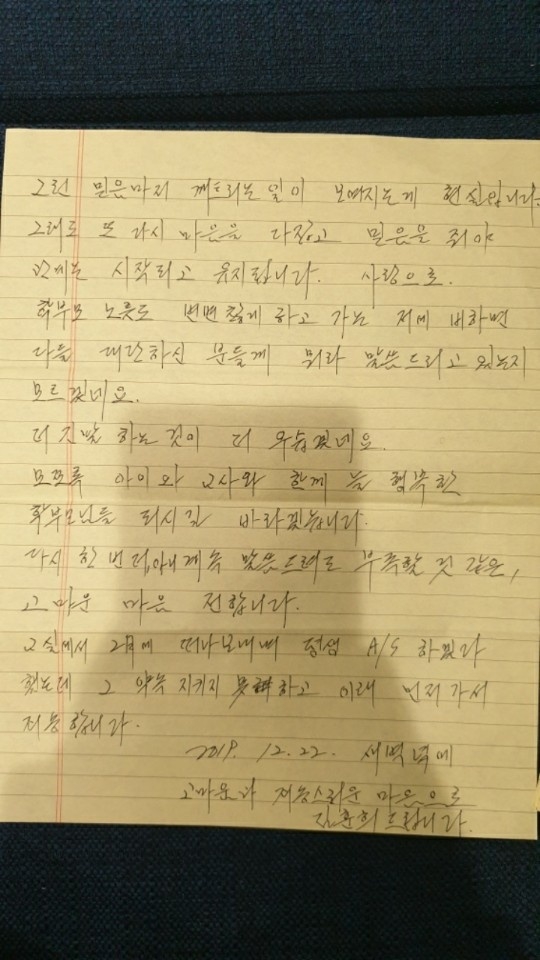 그런 믿음마저 깨트리는 일이 보여지는게 현실입니다.
그래도 또 다시 마음을 다잡고 믿음을 줘야
관계는 시작되고 유지됩니다. 사랑으로.
학부모 노릇도 변변찮게 하고 가는 저에 비하면
다들 대단하신 분들께 뭐라 말씀드리고 있는지
모르겠네요.
더 긴 말 하는 것이 더 우습겠네요.
모쪼록 아이와 교사와 함께 늘 행복한
학부모님들 되시길 바라겠습니다.
다시 한 번 더, 아니 계속 말씀드려도 부족할 것 같은,
고마운 마음 전합니다.
교실에서 떠나보내며 평생 A/S 하겠다
했는데 그 약속 지키지 못하고 이래 먼저 가서
죄송합니다.
2019. 12. 22. 새벽녘에
고마운과 죄송스러운 마음으로
드립니다.